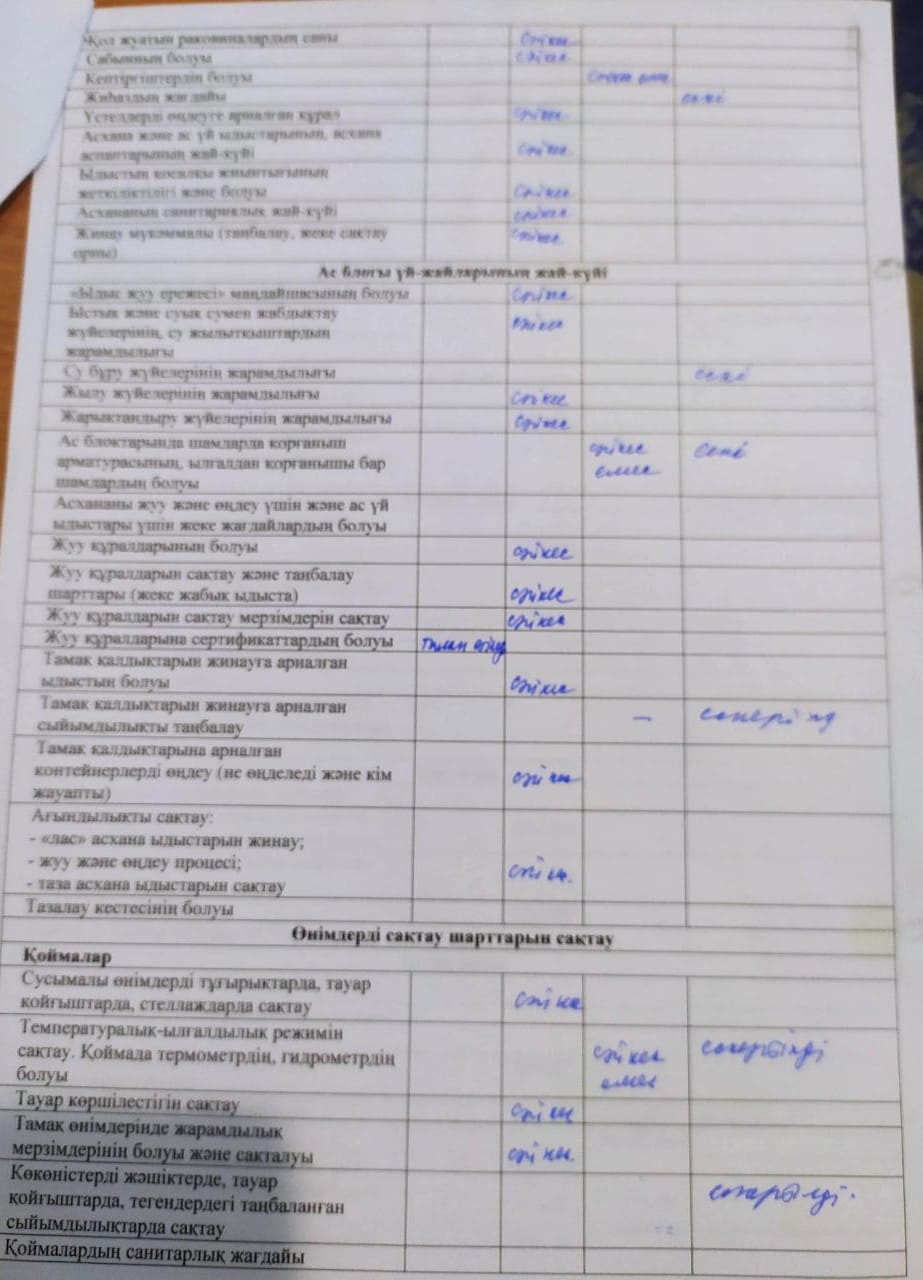 Қол жуатын раковиналардың саны сәйкес
Сабынның болуы сәйкес
Кептіргіштердің болуы сәйкес емес
Жиһаздың жағдайы ескі
Үстелдерді өңдеуге арналған құрал сәйкес
Асхана және ас үй ыдыстарының, асхана
аспаптарының жай-күйі сәйкес
Ыдыстың қосалқы жиынтығының
жеткіліктілігі және болуы сәйкес
Асхананың санитариялық жай-күйі сәйкес
Жинау мүкәммалы (таңбалау, жеке сақтау сәйкес
орны)
Ас блогы үй-жайларының жай-күйі
«Ыдыс жуу ережесі» маңдайшасының болуы сәйкес
Ыстық және суық сумен жабдықтау
жүйелерінің, су жылытқыштардың сәйкес
жарамдылығы
Су бұру жүйелерінің жарамдылығы ескі
Жылу жүйелерінің жарамдылығы сәйкес
Жарықтандыру жүйелерінің жарамдылығы сәйкес
Ас блоктарында шамдарда қорғаныш сәйкес ескі
арматурасының, ылғалдан қорғанышы бар емес
шамдардың болуы
Асхананы жуу және өңдеу үшін және ас үй
ыдыстары үшін жеке жағдайлардың болуы
Жуу құралдарының болуы сәйкес
Жуу құралдарын сақтау және таңбалау
шарттары (жеке жабық ыдыста) сәйкес
Жуу құралдарын сақтау мерзімдерін сақтау сәйкес
Жуу құралдарына сертификаттардың болуы
Тамақ қалдықтарын жинауға арналған
ыдыстың болуы сәйкес
Тамақ қалдықтарын жинауға арналған –
сыйымдылықты таңбалау
Тамақ қалдықтарына арналған
контейнерлерді өңдеу (не өңделеді және кім сәйкес
жауапты)
Ағындылықты сақтау:
- «лас» асхана ыдыстарын жинау;
- жуу және өңдеу процесі; сәйк.
- таза асхана ыдыстарын сақтау
Тазалау кестесінің болуы
Өнімдерді сақтау шарттарын сақтау
Қоймалар
Сусымалы өнімдерді тұғырықтарда, тауар
қойғыштарда, стеллаждарда сақтау сәйкес
Температуралық-ылғалдылық режимін
сақтау. Қоймада термометрдің, гидрометрдің сәйкес ескертілді
болуы емес
Тауар көршілестігін сақтау сәйкес
Тамақ өнімдерінде жарамдылық
мерзімдерінің болуы және сақталуы сәйкес
Көкөністерді жәшіктерде, тауар ескертілді.
қойғыштарда, тегендердегі таңбаланған
сыйымдылықтарда сақтау
Қоймалардың санитарлық жағдайы